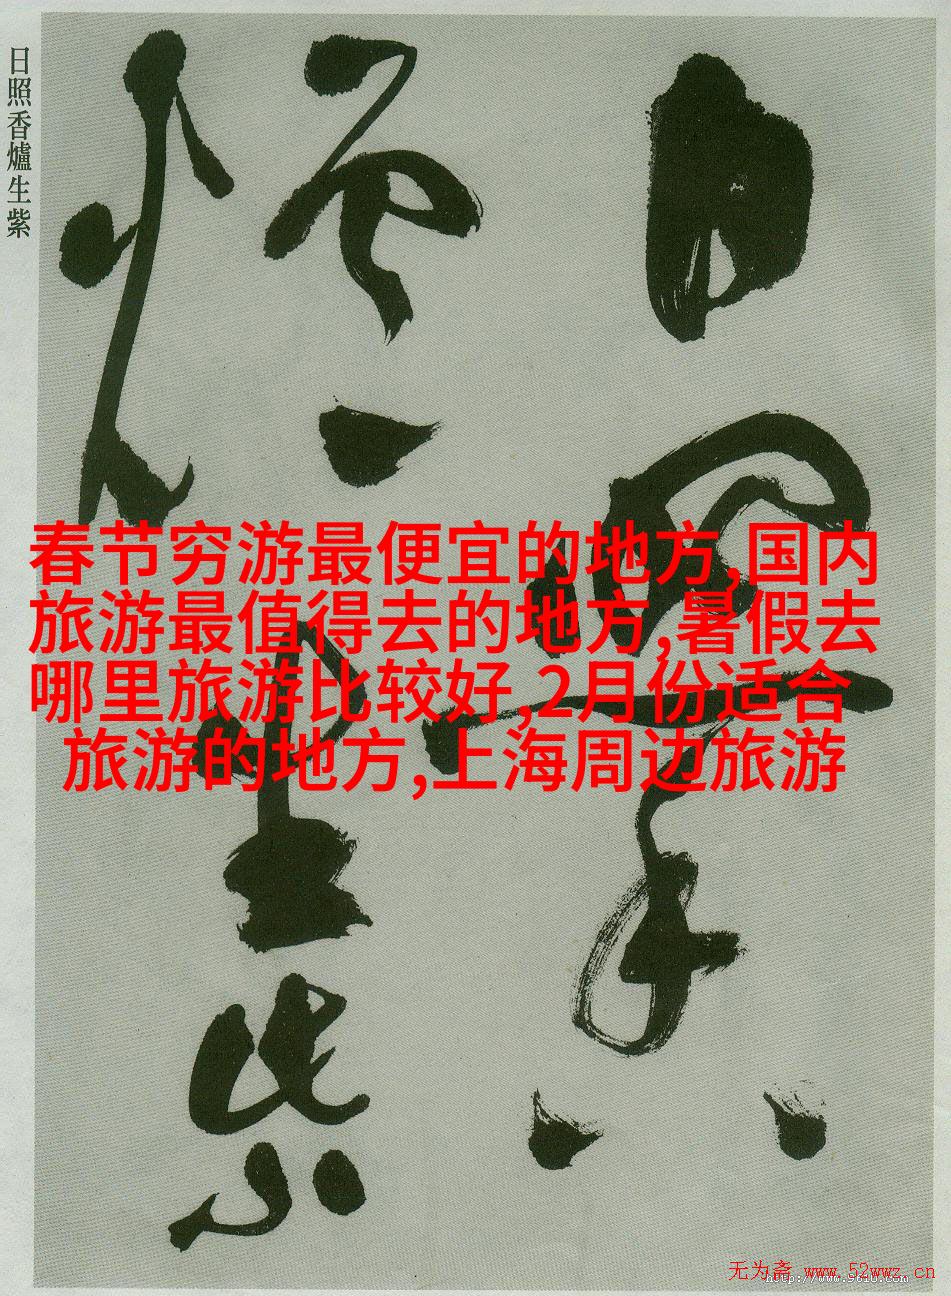 日照香爐生紫
春节穷游最便宜的地方,国内
旅游最值得去的地方,暑假去
哪里旅游比较好,2月份适合
旅游的地方,上海周边旅游
日照香
爐生紫
无为斋 www.52wwz.cn
http://www.9610.com